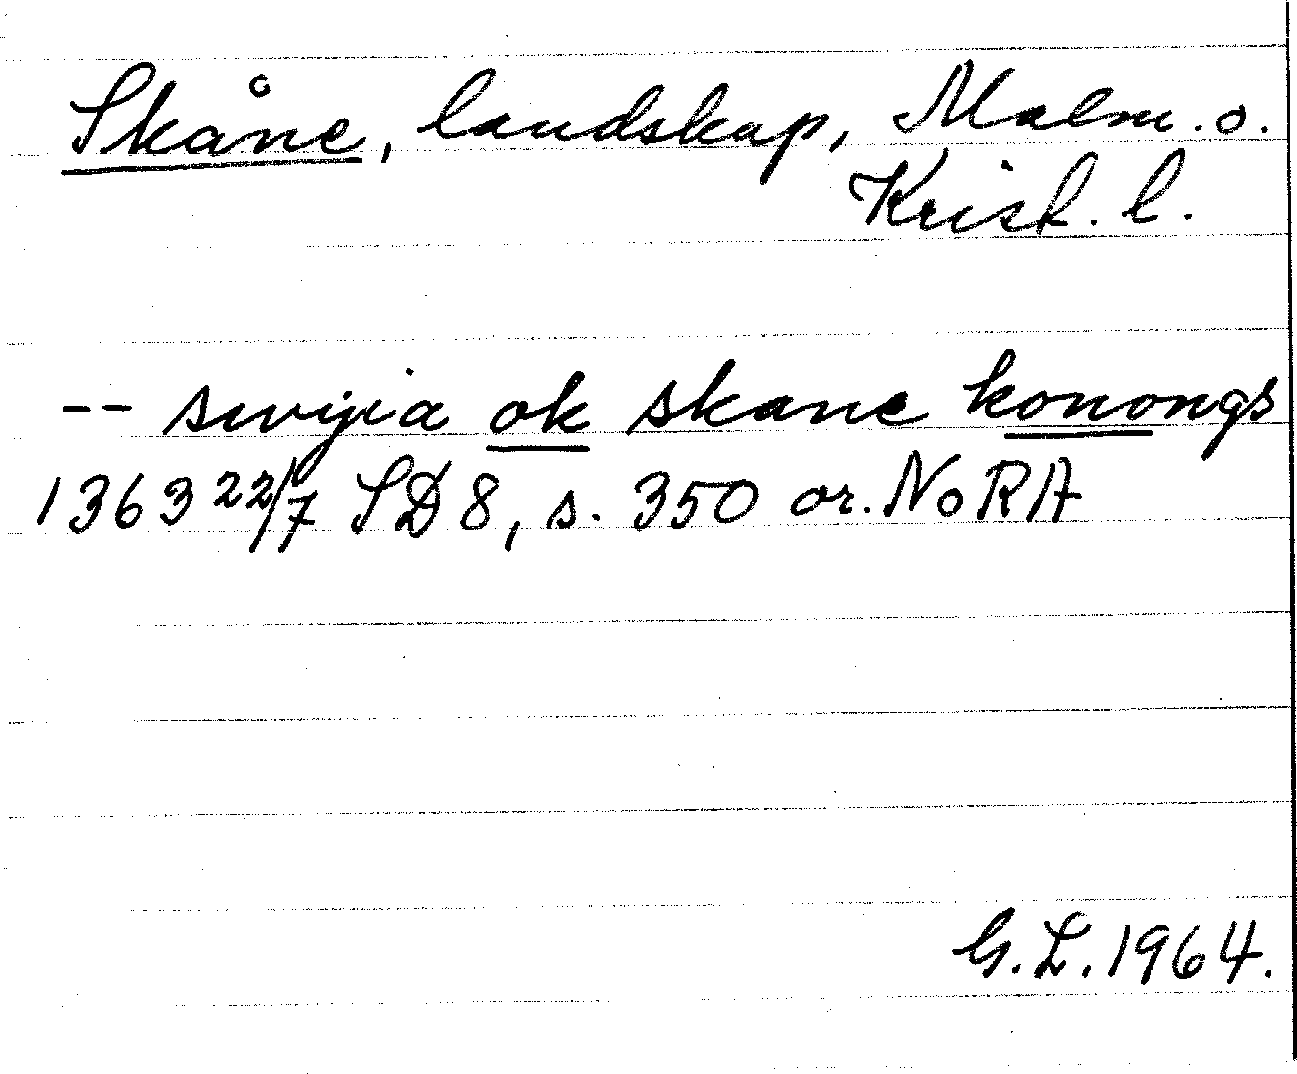 Skåne, landskap, Malm. o.
Krist. l.
-- swyia ok skane konongs
1363 22/7 SD 8, s. 350 or. NoRA
G. L. 1964.